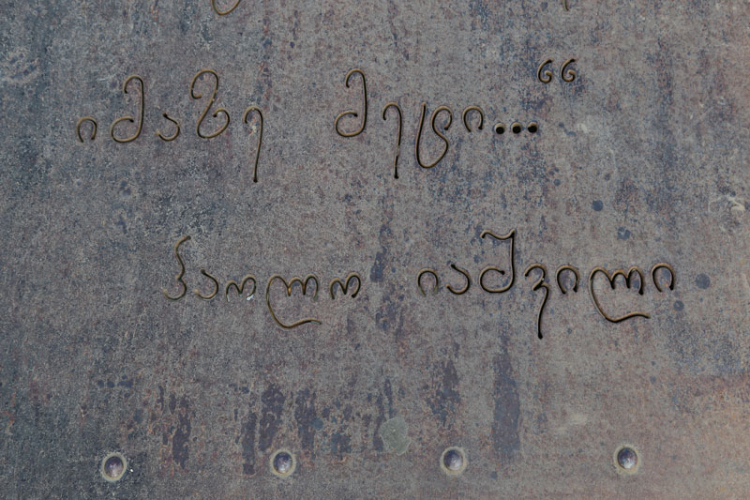 იმაზე მეტი...“
პაოლო იაშვილი